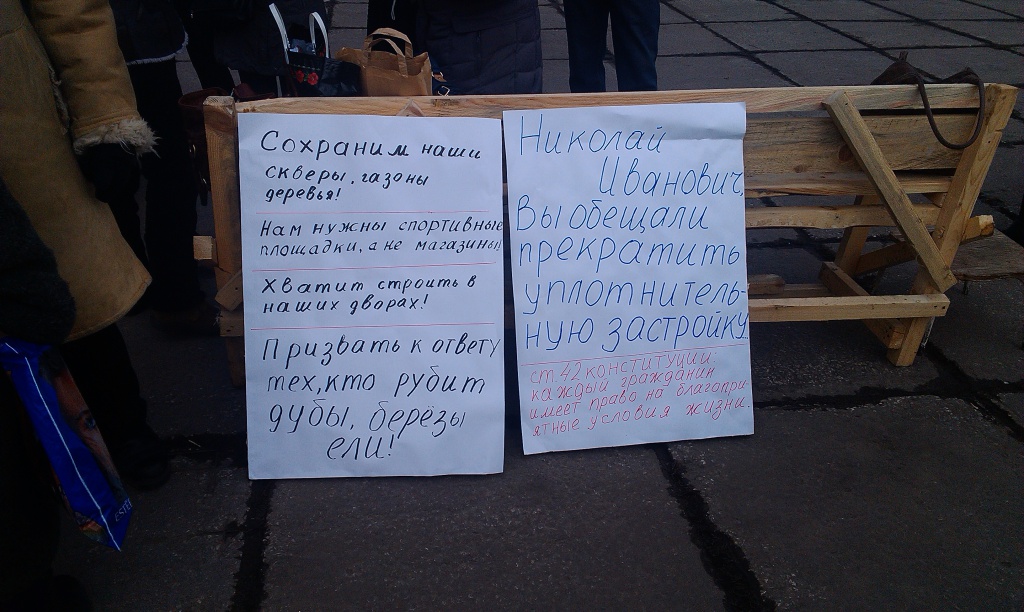 Сохраним наши
скверы, газоны
деревья!
Нам нужны спортивные
площадки, а не магазины
Хватит строить в
наших дворах!
Призвать к ответу
тех, кто рубит
дубы, берёзы
ели!
Николай
Иванович,
Вы обещали
прекратить
уплотнитель-
ную застройку...
ст. 42 конституции:
каждый гражданин
имеет право на благопри-
ятные условия жизни.